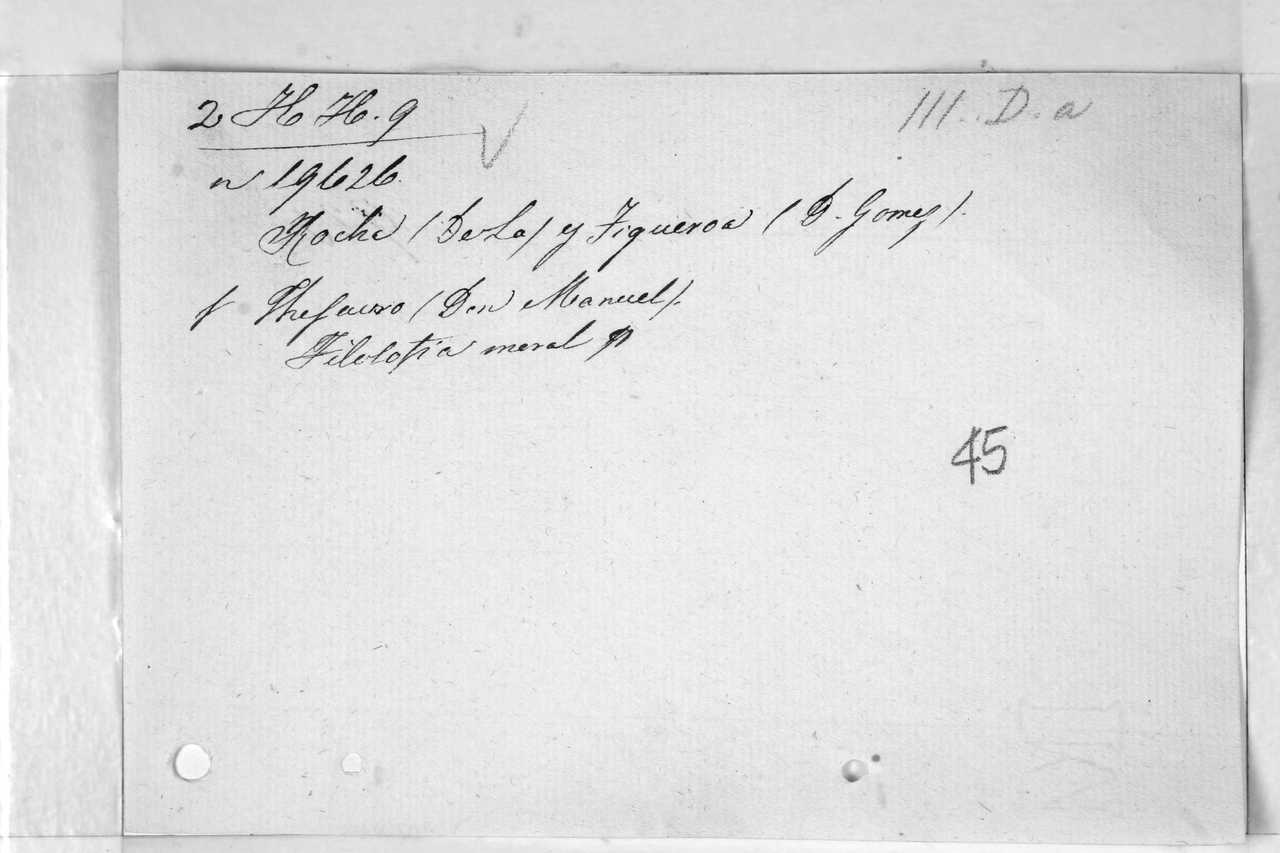 2 H H. 9
III. D. a
n 19626.
Rocha (De La) y Figueroa (D. Gomez).
f Thesauro (Don Manuel).
Filolofia moral
45